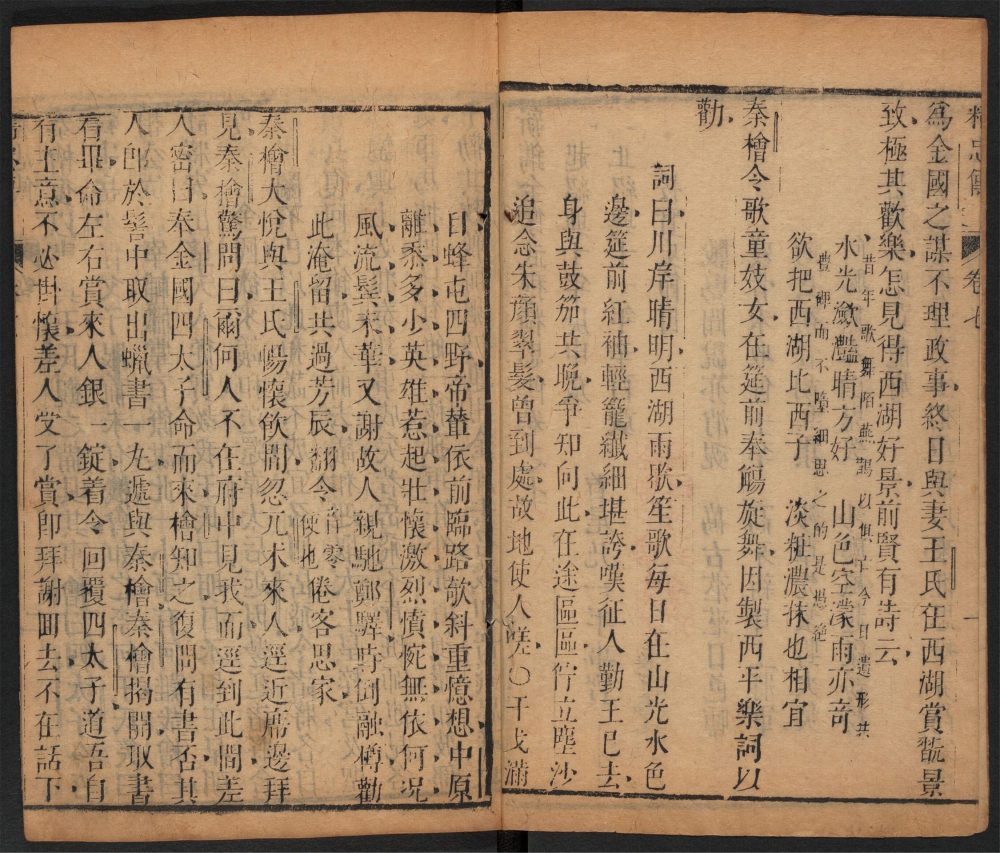 精忠傳
卷七
一
爲金國之謀不理政事終日與妻王氏在西湖賞翫景
致極其歡樂怎見得西湖好景前賢有詩云
昔年歌舞陌燕鵲以俱亡今日遺形共
水光瀲灧晴方好 山色空濛雨亦奇
豐
而不墮細思之的是思
欲把西湖比西子 淡粧濃抹也相宜
秦檜令歌童妓女在筵前奉觴旋舞因製西平樂詞以
勸
詞曰川岸晴明西湖雨歇笙歌每日在山光水色
邊筵前紅袖輕籠纖細堪誇嘆征人勤王已去
身與鼓笳共晚爭知向此在途區區佇立塵沙
追念朱顏翠髮曾到處故地使人嗟○干戈滿
日蜂屯四野帝輦依前臨路欹斜重憶想中原
離黍多少英雄惹起壯懷激烈憤惋無依何况
風流鬂未華又謝故人親馳鄭驛時倒融樽勸
此淹留共過芳辰翻令音零使也倦客思家
秦檜大悅與王氏暢懷飲間忽兀术來人逕近席邊拜
見秦檜驚問曰爾何人不在府中見我而逕到此間差
人密曰奉金國四太子命而來檜知之復問有書否其
人郎於髻中取出蠟書一丸遞與秦檜秦檜揭開取書
看畢命左右賞來人銀一錠着令回覆四太子道吾自
有主意不必掛懷差人受了賞即拜謝回去不在話下